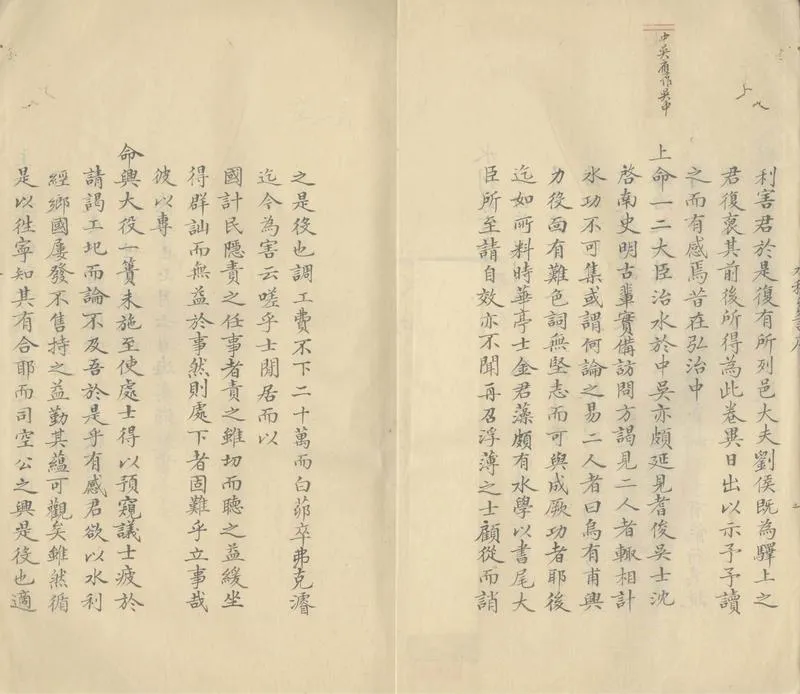 中吳應作吳中
利害君於是復有所列邑大夫劉侯既為驛上之
君復裒其前後所得為此卷異日出以示予予讀
之而有感焉昔在弘治中
上命一二大臣治水於中吳亦頗延見耆俊吳士沈
啓南史明古輩實備訪問方謁見二人者輒相計
水功不可集或謂何論之易二人者曰烏有甫興
力後而有難色詞無堅志而可與成厥功者耶後
迄如所料時華亭士金君藻頗有水學以書尾大
臣所至請自效亦不聞再召浮薄之士顧從而誚
之是後也調工費不下二十萬而白茆卒弗克濬
迄今為害云嗟乎士閒居而以
國計民隱責之任事者責之雖切而聽之益緩坐
得群訕而無益於事然則處下者固難乎立事哉
彼以專
命興大役一簣未施至使處士得以預窺議士疲於
請謁工圯而論不及吾於是乎有感君欲以水利
經鄉國屢發不售持之益勤其蘊可觀矣雖然循
是以徃寧知其有合耶而司空公之興是役也適